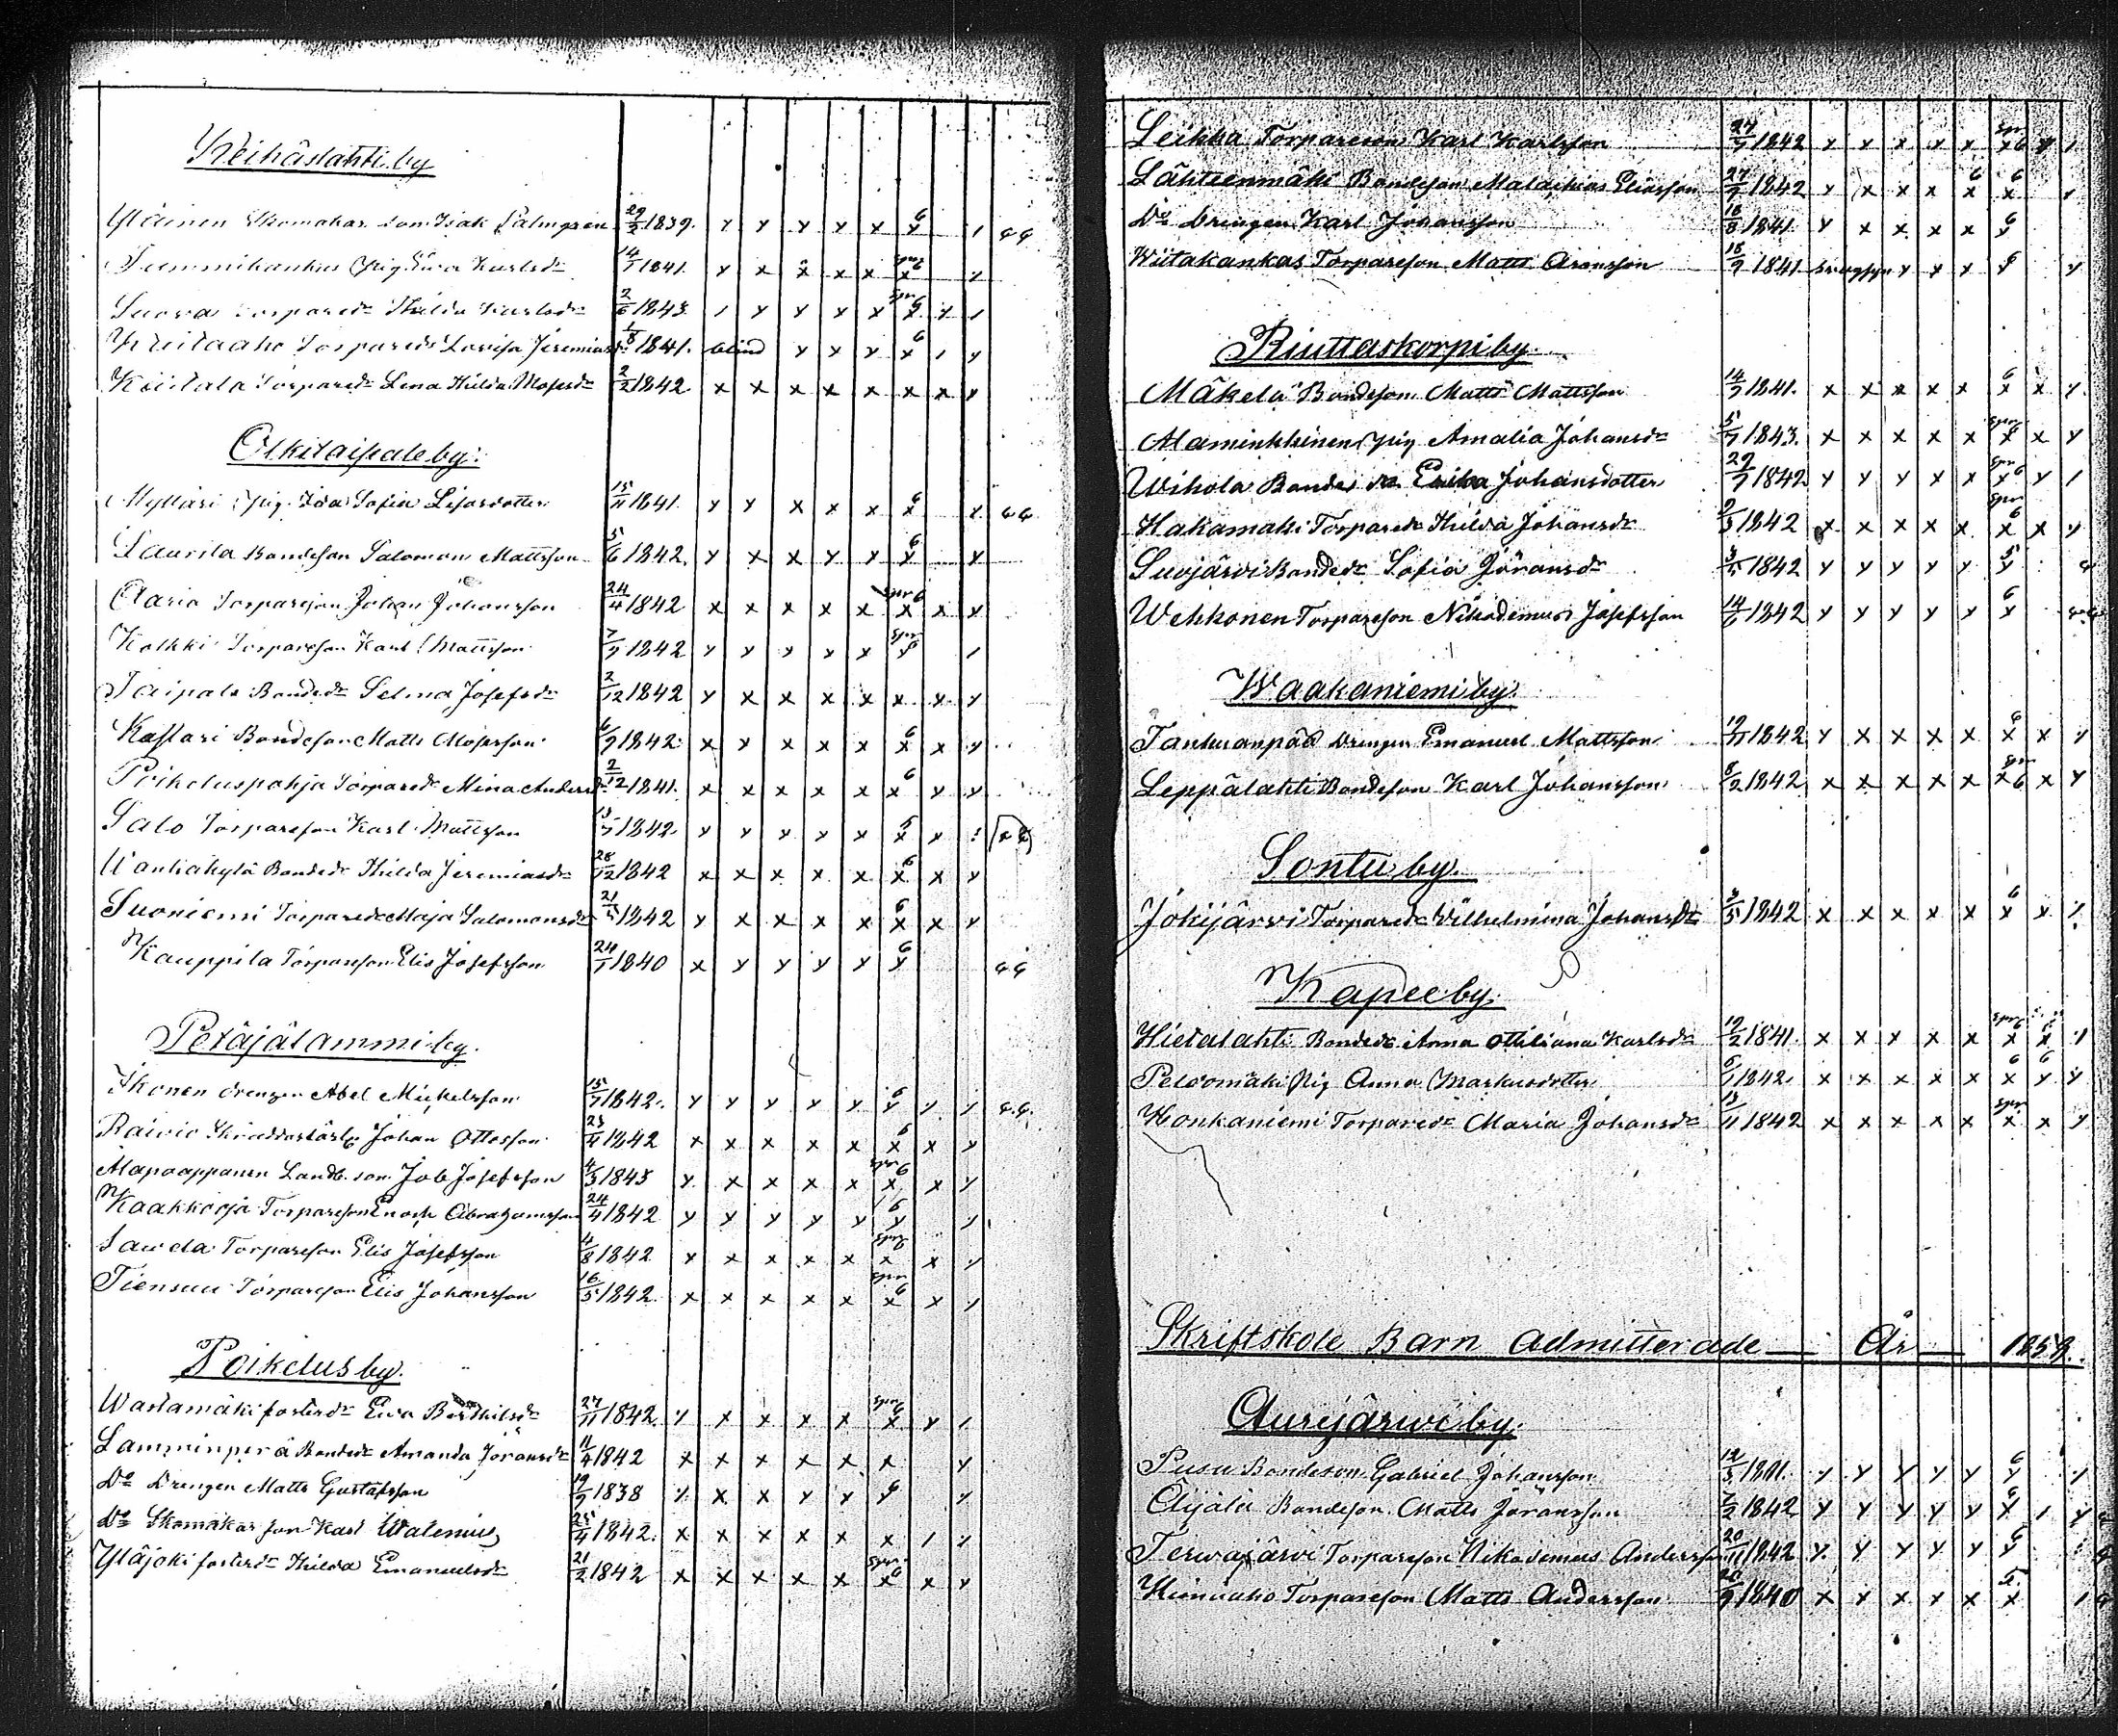 Keihäslahti by
Yläinen Skomakar son Isak Palmgren 29/3 1839. y y y y x 6 y 1
Tummikankus Pig Ewa Karlsdr 14/7 1841. y x x x x
Suova Torparedr Hilda Karlsdr 2/6 1843 1 y y y x y 1
Torpareds Lovisa Jeremiasd 1/8 1841. blind y x y x 6 1 y
Torparedr Lena Hilda Mosesdr 2/2 1842 x x x x x x x y
Olkitaipale by.
Myllari Pig. Ida Sofia Elisosdotter 15/11 1841. y y x x x 6
Laurila Bondeson Salomon Mattsson 5/6 1842. y x x y y 6 y
Aaria Torpareson Johan Johansson 24/4 1842 x x x x x spr 6 x x
Kolkki Torpareson Karl Mattsson 7/9 1842 y y y y x spr y 1
Taipale Bondedr Selma Josefsdr 2/12 1842 y x x x x x y y
Kastari Bondeson Matts Mosesson 6/9 1842 x y x x x 6 x x y
Poikeluspohja Torparedr Mina Anders 2/12 1841. x x x x x 6 x y y
Salo Torpareson Karl Mattsson 1842. y y y y y x y
Wankakylä Bondedr Hilda Jeremiasdr 28/12 1842 x x x x x 6 x x y
Suoniemi Torparedr Maja Salomonsdr 21/5 1842 y x x x x 6 x x y
Kauppila Torpareson Elis Josefsson 24/7 1840 x y y y y 6 y
Petäjälammi by.
Ikonen drengen Abel Mickelsson 15/7 1842. y y y y y 6 y y y
Raivio Johan Ottosson 23/4 1842 x x x x x 6 x x y
Alapaappanen Landb. son Job Josefsson 4/3 1843 y x x x x spr 6 x x y
Kaakkooja Torpareson Enoch Abrahamsson 24/4 1842 y y y y y 6 y y
Sawela Torpareson Elis Josefsson 4/8 1842 y x x x x spr x x y
Tiensuu Torpareson Elis Johansson 16/5 1842. x x x x x spr 6 x x 1
Poikelus by.
Wastamäki fosterdr Ewa Berthilsdr 27/11 1842. y x x x x spr 6 x y 1
Lamminperä Bondedr Amanda Jöransdr 11/4 1842 x x x x x x y
Do Drengen Matts Gustafsson 19/9 1838 y x x y y 6 y
Do Skomakar son Karl Walenius 25/4 1842. x x x x x x 1 y
Yläjoki fosterdr Hilda Emanuelsdr 21/2 1842 x x x x x spr 6 x x y
Leikka Torpareson Karl Karlsson 24/7 1842 y x x x x spr x 6 y 1
Lähteenmäki Bondeson Malackias Eliasson 27/7 1842 y x x x 6 x 6 x y
Do drengen Karl Johansson 18/8 1841. y x x x x 6 y
Wiitakankas Torpareson Matts Aronsson 18/9 1841 y x x 6 y
Riuttaskorpi by.
Mäkelä Bondeson Matts Mattsson 14/7 1841. x x x x x 6 x x y
Alaminkkinen Pig Amalia Johansdr 5/7 1843. x x x x x spr x x y
Wihola Bonde Erika Johansdotter 29/7 1842 y y y y y spr x 6 y 1
Hakamäki Torparedr Hilda Johansdr 2/3 1842 x x x x x spr 6 x x y
Suojärvi Bondedr Sofia Jöransdr 1842 y y y y y 5 y
Wehkonen Torpareson Nikodemus Josefsson 14/6 1842 y y y y y 6 y
Waakaniemi by.
Tankuanpää drengen Emanuel Mattsson 1842 y x x x x 6 x x y
Leppälahti Bondeson Karl Johansson 8/2 1842 x x x x x spr x 6 x y
Sontu by.
Jokijärvi Torparedr Vilhelmina Johansdr 3/5 1842 x x x x x 6 x x y
Kapee by.
Hietalahti Bondedr Anna Ottiliana Karlsdr 12/2 1841. x x x x x spr 6 x x y
Peltomäki Pig Anna Markusdotter 6/7 1842. x x x x x 6 x 6 y y
Honkaniemi Torparedr Maria Johansdr 13/11 1842 x x x x x spr x x y
Skriftskole Barn Admitterade År 1858.
Aurejärwi by.
Pusu Bondeson Gabriel Johansson 12/3 y y y y y 6 y y
Äijälä Bondeson Matts Jöransson 7/2 1842 y y y y y 6 x 1 y
Terwajärvi Torpareson Nikodemus Andersson 20/11 1842 y y y y y 6 y
Torpareson Matts Andersson 1840 x x x x x 5 x 1